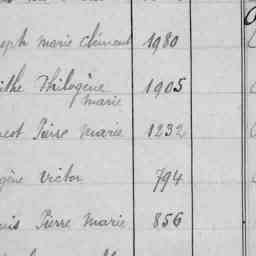 seph marie Clément 1980
ithe Philogène 1905
marie
nest Pierre Marie 1232
gène Victor 794
uis Pierre Marie 856